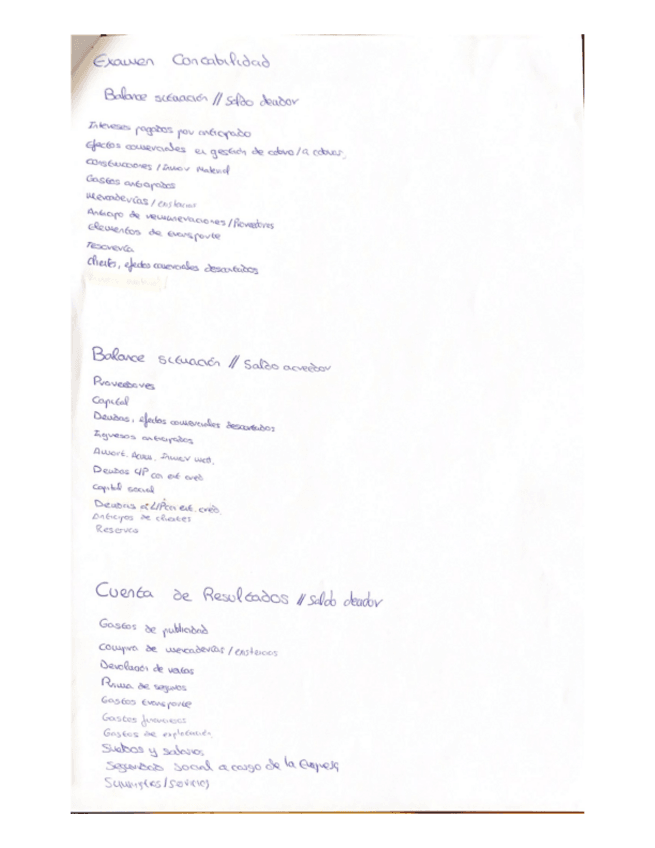 Examen Contabilidad
Balance situación // Saldo deudor
Intereses pagados por anticipado
Efectos comerciales en gestión de cobro / a cobrar.
Construcciones / Inmov Material
Gastos anticipados
Mercaderías / existencias
Anticipo de remuneraciones / Proveedores
Elementos de transporte
Tesorería
Clientes, efectos comerciales descontados
Balance situación // Saldo acreedor
Proveedores
Capital
Deudas, efectos comerciales descontados
Ingresos anticipados
Amort. Acum. Inmov mat.
Deudas L/P con ent cred
Capital social
Deudas a L/P con ent. cred.
Anticipos de clientes
Reserva
Cuenta de Resultados // Saldo deudor
Gastos de publicidad
Compra de mercaderías / existencias
Devolución de ventas
Prima de seguros
Gastos transporte
Gastos financieros
Gastos de explotación
Sueldos y salarios
Seguridad social a cargo de la Empresa
Suministros / Servicios